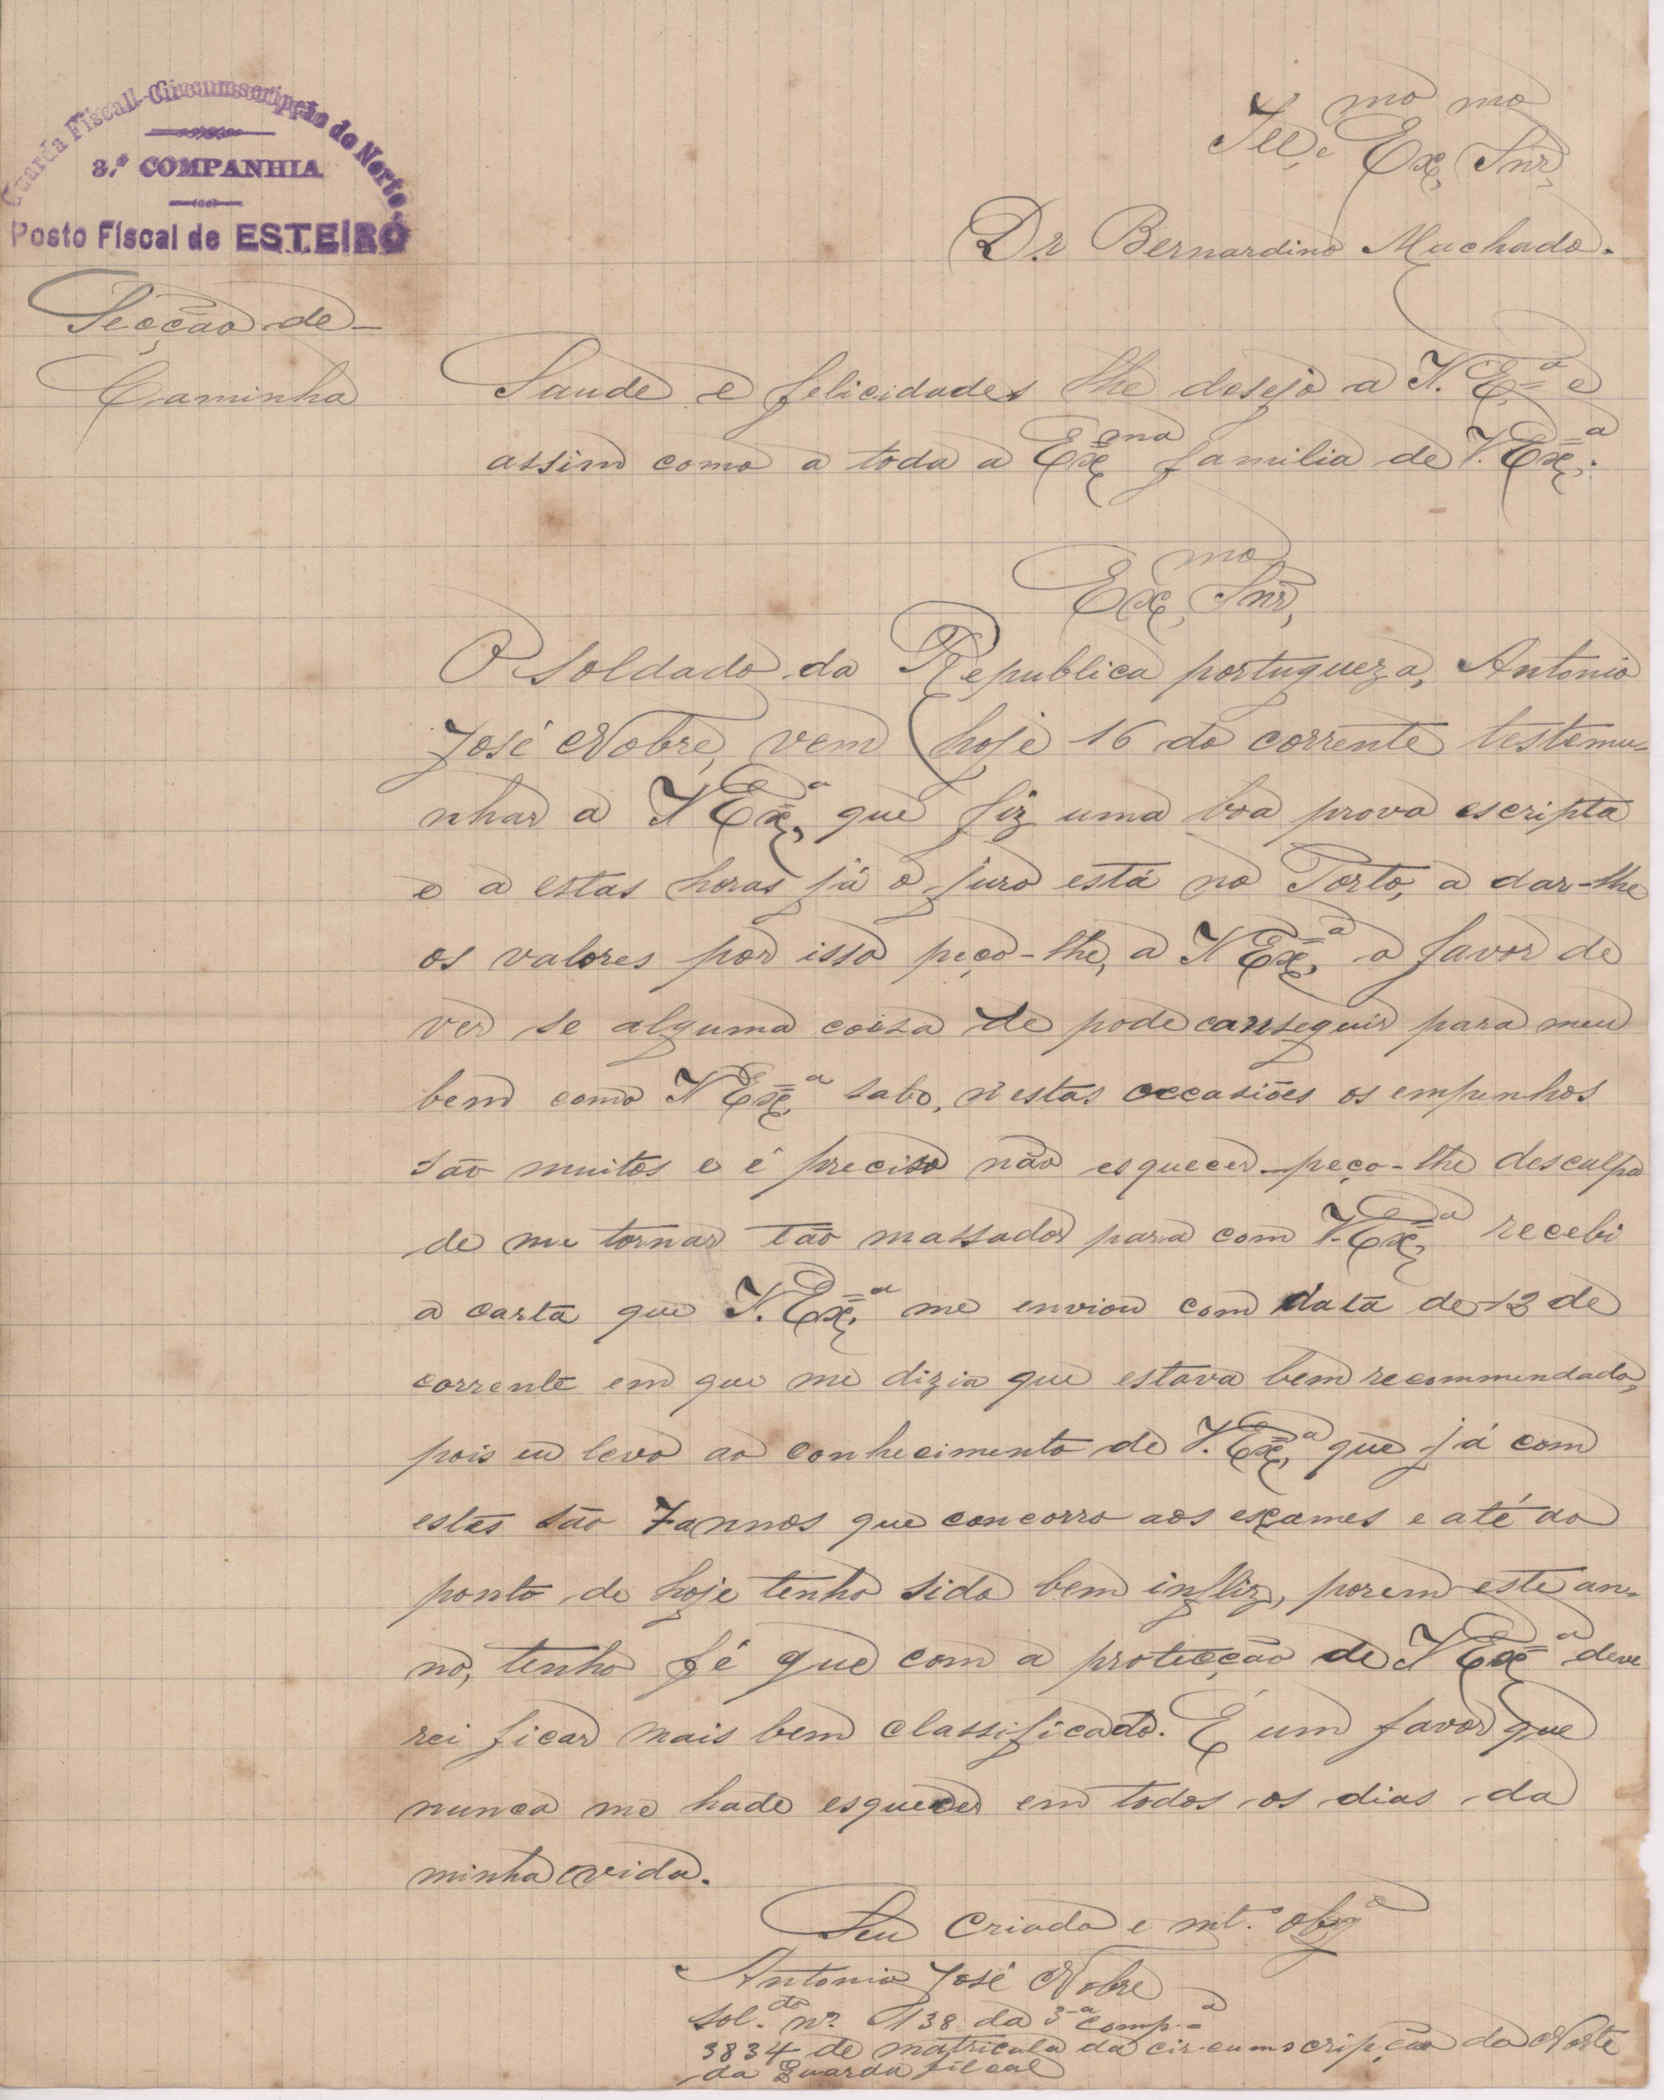 Guarda Fiscal - Circumscripção do Norte
3.ª COMPANHIA
Posto Fiscal de ESTEIRO
Secção de
Caminha
Ill.mo e Ex.mo Snr.
Dr Bernardino Machado.
Saude e felicidades lhe desejo a V. E.ª e
assim como a toda a Ex.ma familia de V. Ex.ª.
Ex.mo Snr,
O soldado da Republica portugueza, Antonio
José Nobre, vem hoje 16 do corrente testemu-
nhar a V Ex.ª que fiz uma boa prova escripta
e a estas horas já o juro está no Porto, a dar-lhe
os valores por isso peço-lhe, a V Ex.ª o favor de
ver se alguma coiza de pode conseguir para meu
bem como V Ex.ª sabe, n'estas occasiões os empenhos
são muitos e é preciso não esquecer - peço-lhe desculpa
de me tornar tão massador para com V. Ex.ª recebi
a carta que V. Ex.ª me enviou com data de 13 de
corrente em que me dizia que estava bem recommendado,
pois eu levo ao conhecimento de V. Ex.ª que já com
estes são 7 annos que concorro aos exames e até ao
ponto de hoje tenho sido bem infliz, porem este an-
no, tenho fé que com a protecção de V Ex.ª deve
rei ficar mais bem classificado. É um favor que
nunca me hade esquecer em todos os dias da
minha vida.
Seu Criado e mt.º obg.º
Antonio José Nobre
sol.do nº. 138 da 3ª comp.ª
3834 de matricula da circumscripção do Norte
da Guarda fiscal